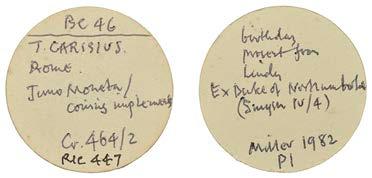 BC 46
T. CARISIUS.
Rome.
Juno Moneta/
coining implements
Cr. 464/2
RIC 447
birthday
present from
Lindy
Ex Duke of Northumberland
(Smyth IV/4)
Miller 1982
P1